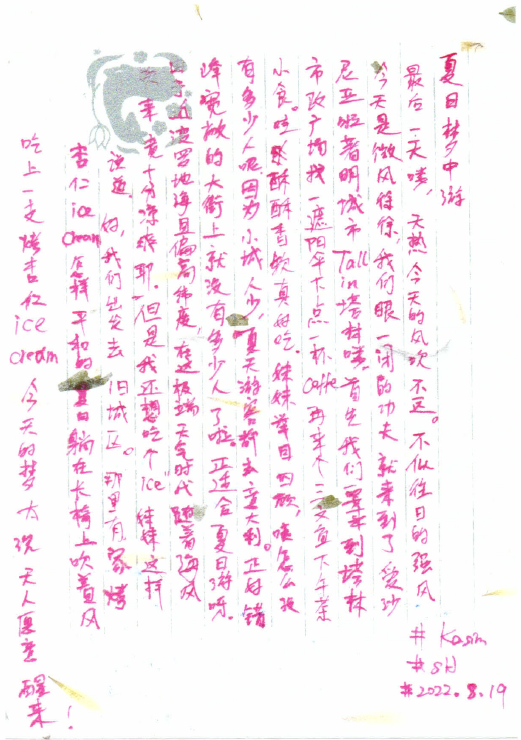 夏日梦中游
最后一天喽，天热今天的风吹不迟。不似往日的强风
今天是微风徐徐，我们眼一闭的功夫就来到了爱沙
尼亚 著明城市 Tallin 塔林喽。首先我们 到塔林
市政广场找一遮阳伞下点一杯 Caffe 再来个三文鱼下午茶
小食。哇 酥酥香软真好吃。妹妹举目四顾，咦怎么没
有多少人呢。因为小城人少，夏天游客都去意大利。正好错
峰宽敞的大街上就没有多少人了啦。正适合夏日游呀。
由于近波罗地海且偏高纬度，在这极端天气时代随着海风
来竟十分凉爽耶。但是我还想吃个“ice” 妹妹这样
说道。好，我们出发去 旧城区。那里有家烤
杏仁 ice cream 怎样 平和的夏日躺在长椅上吹着风
吃上一支烤杏仁 ice cream 今天的梦 大 天人
醒来！
# Kasm
# SH
# 2022.8.19